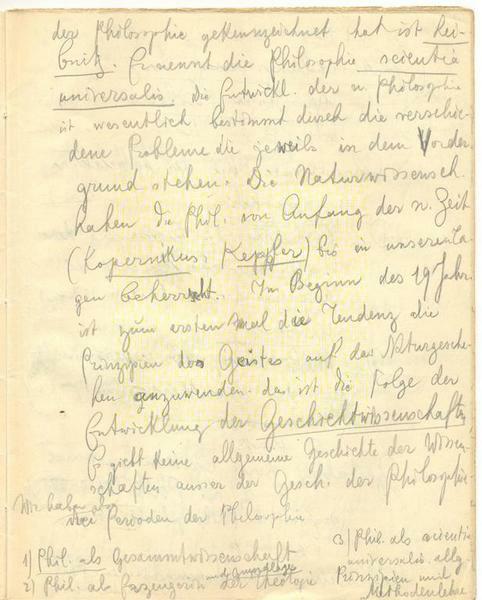 der Philosophie gekennzeichnet hat ist Lei-
bnitz. Er nennt die Philosophie scientia
universalis. Die Entwickl. der n. Philosophie
ist wesentlich bestimmt durch die verschie-
dene Probleme die jeweils in dem Vorder-
grund stehen. Die Naturwissensch.
haben die Phil. von Anfang der n. Zeit
(Kopernikus, Keppler) bis in unseren Ta-
gen beherrscht. Im Beginn des 19 Jahr.
ist zum ersten mal die Tendenz die
Prinzipien des Geistes auf das Naturgesche-
hen anzuwenden. das ist die Folge der
Entwicklung der Geschichtwissenschaften
Es giebt keine allgemeine Geschichte der Wissen-
schaften ausser der Gesch. der Philosophie.
Wir haben
drei Perioden der Philosophie
1) Phil. als Gesammtwissenschaft
2) Phil. als und Grundlage der Theologie
3) Phil. als scientia
universalis. allg.
Prinzipien und
Methodenlehre